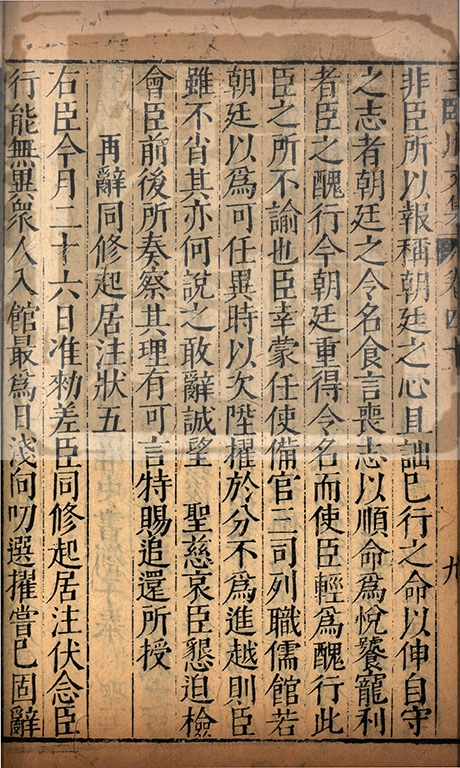 王臨川文集 卷四十 九
非臣所以報稱朝廷之心且詘已行之命以伸自守
之志者朝廷之令名食言喪志以順命爲悅饕寵利
者臣之醜行今朝廷重得令名而使臣輕爲醜行此
臣之所不諭也臣幸蒙任使備官三司列職儒館若
朝廷以爲可任異時以次陛擢於分不爲進越則臣
雖不省其亦何說之敢辭誠望 聖慈哀臣懇迫檢
會臣前後所奏察其理有可言特賜追還所授
再辭同修起居注狀五
右臣今月二十六日准勑差臣同修起居注伏念臣
行能無異衆人入館最爲日淺向叨選擢嘗已固辭